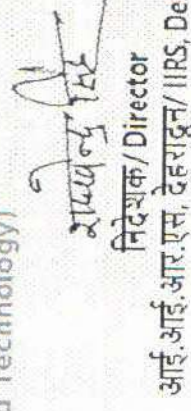 Technology)
निदेशक/ Director
आई.आई.आर.एस, देहरादून/ IIRS, De